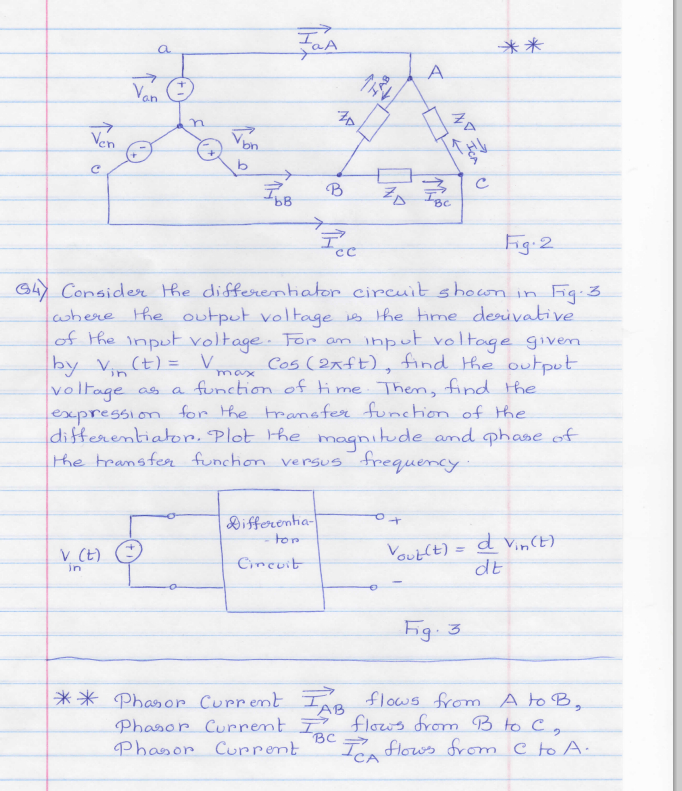 a
I aA
**
A
V an
Z Δ
I AB
Z Δ
I CA
n
V cn
V bn
c
b
B
C
I bB
Z Δ
I BC
I cC
Fig. 2
Q4) Consider the differentiator circuit shown in Fig. 3
where the output voltage is the time derivative
of the input voltage. For an input voltage given
by V in (t) = V max Cos (2πft), find the output
voltage as a function of time. Then, find the
expression for the transfer function of the
differentiator. Plot the magnitude and phase of
the transfer function versus frequency.
Differentia-
-tor
Circuit
V in (t)
+
V out (t) = d/dt V in (t)
-
Fig. 3
** Phasor Current I AB flows from A to B,
Phasor Current I BC flows from B to C,
Phasor Current I CA flows from C to A.